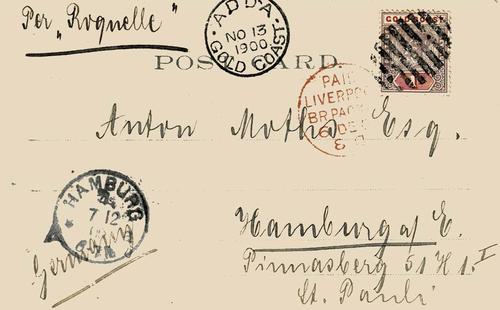 Per „Roquelle"
ADDA
NO 13
1900
GOLD COAST
GOLD COAST
POST CARD
PAID
LIVERPOOL
BR.PACKET
6 DE
Anton Moths Esq.
HAMBURG
7 12
Germany
Hamburg a/E.
Pinnasberg 51 H 1. I
St. Pauli